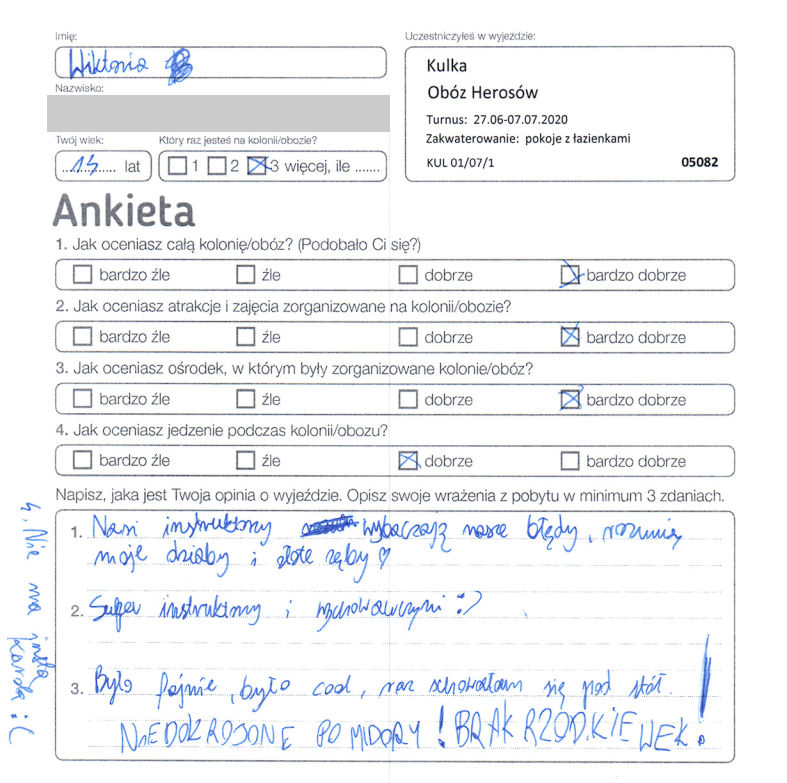 Imię:
Wiktoria
Nazwisko:
Twój wiek:
Który raz jesteś na kolonii/obozie?
.......... lat
1 2 3 więcej, ile .......
Uczestniczyłeś w wyjeździe:
Kulka
Obóz Herosów
Turnus: 27.06-07.07.2020
Zakwaterowanie: pokoje z łazienkami
KUL 01/07/1 05082
Ankieta
1. Jak oceniasz całą kolonię/obóz? (Podobało Ci się?)
bardzo źle źle dobrze bardzo dobrze
2. Jak oceniasz atrakcje i zajęcia zorganizowane na kolonii/obozie?
bardzo źle źle dobrze bardzo dobrze
3. Jak oceniasz ośrodek, w którym były zorganizowane kolonie/obóz?
bardzo źle źle dobrze bardzo dobrze
4. Jak oceniasz jedzenie podczas kolonii/obozu?
bardzo źle źle dobrze bardzo dobrze
Napisz, jaka jest Twoja opinia o wyjeździe. Opisz swoje wrażenia z pobytu w minimum 3 zdaniach.
1. Nasi instruktorzy wybaczają nasze błędy, rozumią
moje dziaby i złote zęby ♡
2. Super instruktorzy i wychowawczyni :)
3. Było fajnie, było cool, raz schowałam się pod stół.
NIEDOKROJONE POMIDORY! BRAK RZODKIEWEK!
4. Nie ma insta
Karola :(